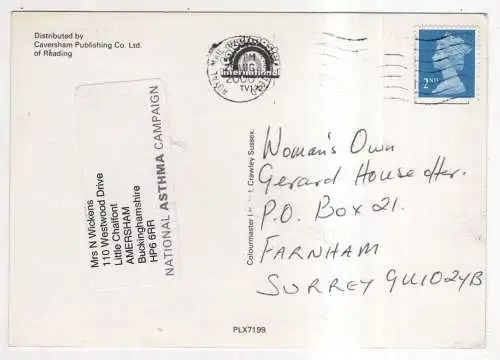 Distributed by
Caversham Publishing Co. Ltd.
of Reading
ROYAL MAIL
International
2000
TV1X2
2ND
NATIONAL ASTHMA CAMPAIGN
Mrs N Wickens
110 Westwood Drive
Little Chalfont
AMERSHAM
Buckinghamshire
HP6 6RR
Colourmaster Crawley Sussex.
Woman's Own
Gerard House offer.
P.O. Box 21.
FARNHAM
SURREY GU102YB
PLX7199